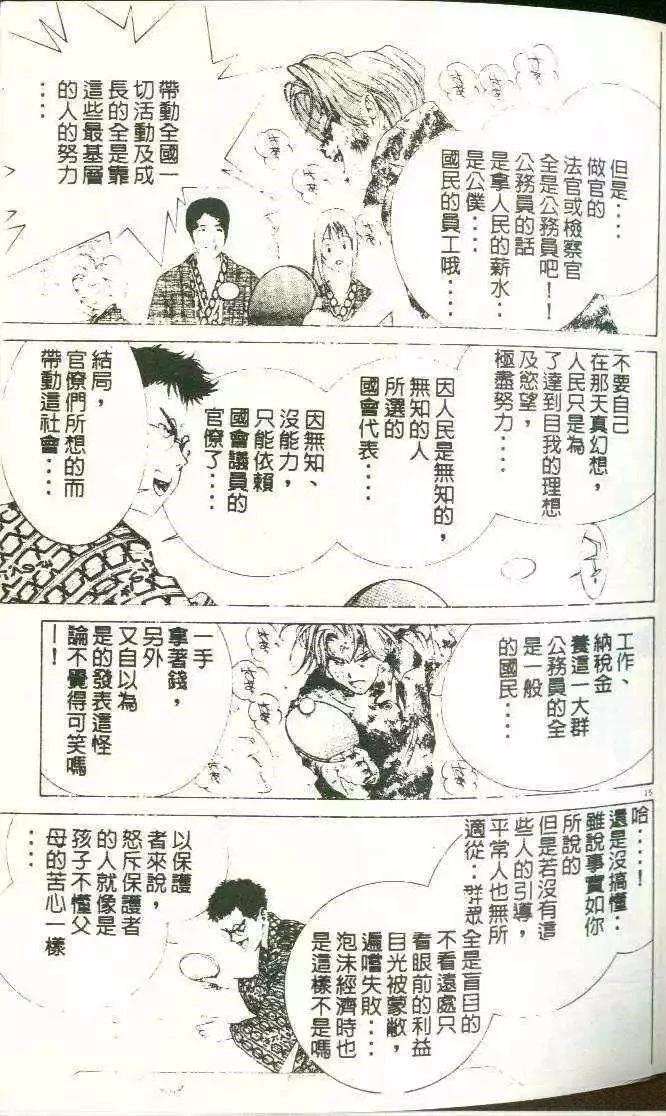 但是‥‥
做官的
法官或檢察官
全是公務員吧!!
公務員的話
是拿人民的薪水‥
是公僕‥‥
國民的員工哦‥‥
帶動全國一
切活動及成
長的全是靠
這些最基層
的人的努力
‥‥
不要自己
在那天真幻想,
人民只是為
了達到自我的理想
及慾望,
極盡努力‥‥
因人民是無知的,
無知的人
所選的
國會代表‥‥
因無知、
沒能力,
只能依賴
國會議員的
官僚了‥‥
結局,
官僚們所想的而
帶動這社會‥‥
工作、
納稅金
養這一大群
公務員的全
是一般
的國民‥‥
一手
拿著錢,
另外
又自以為
是的發表這怪
論不覺得可笑嗎
—!
15
哈‥‥!
還是沒搞懂‥
雖說事實如你
所說的
但是若沒有這
些人的引導,
平常人也無所
適從‥群眾全是盲目的
不看遠處只
看眼前的利益
目光被蒙敝,
遍嚐失敗‥‥
泡沫經濟時也
是這樣不是嗎
以保護
者來說,
怒斥保護者
的人就像是
孩子不懂父
母的苦心一樣
‥‥